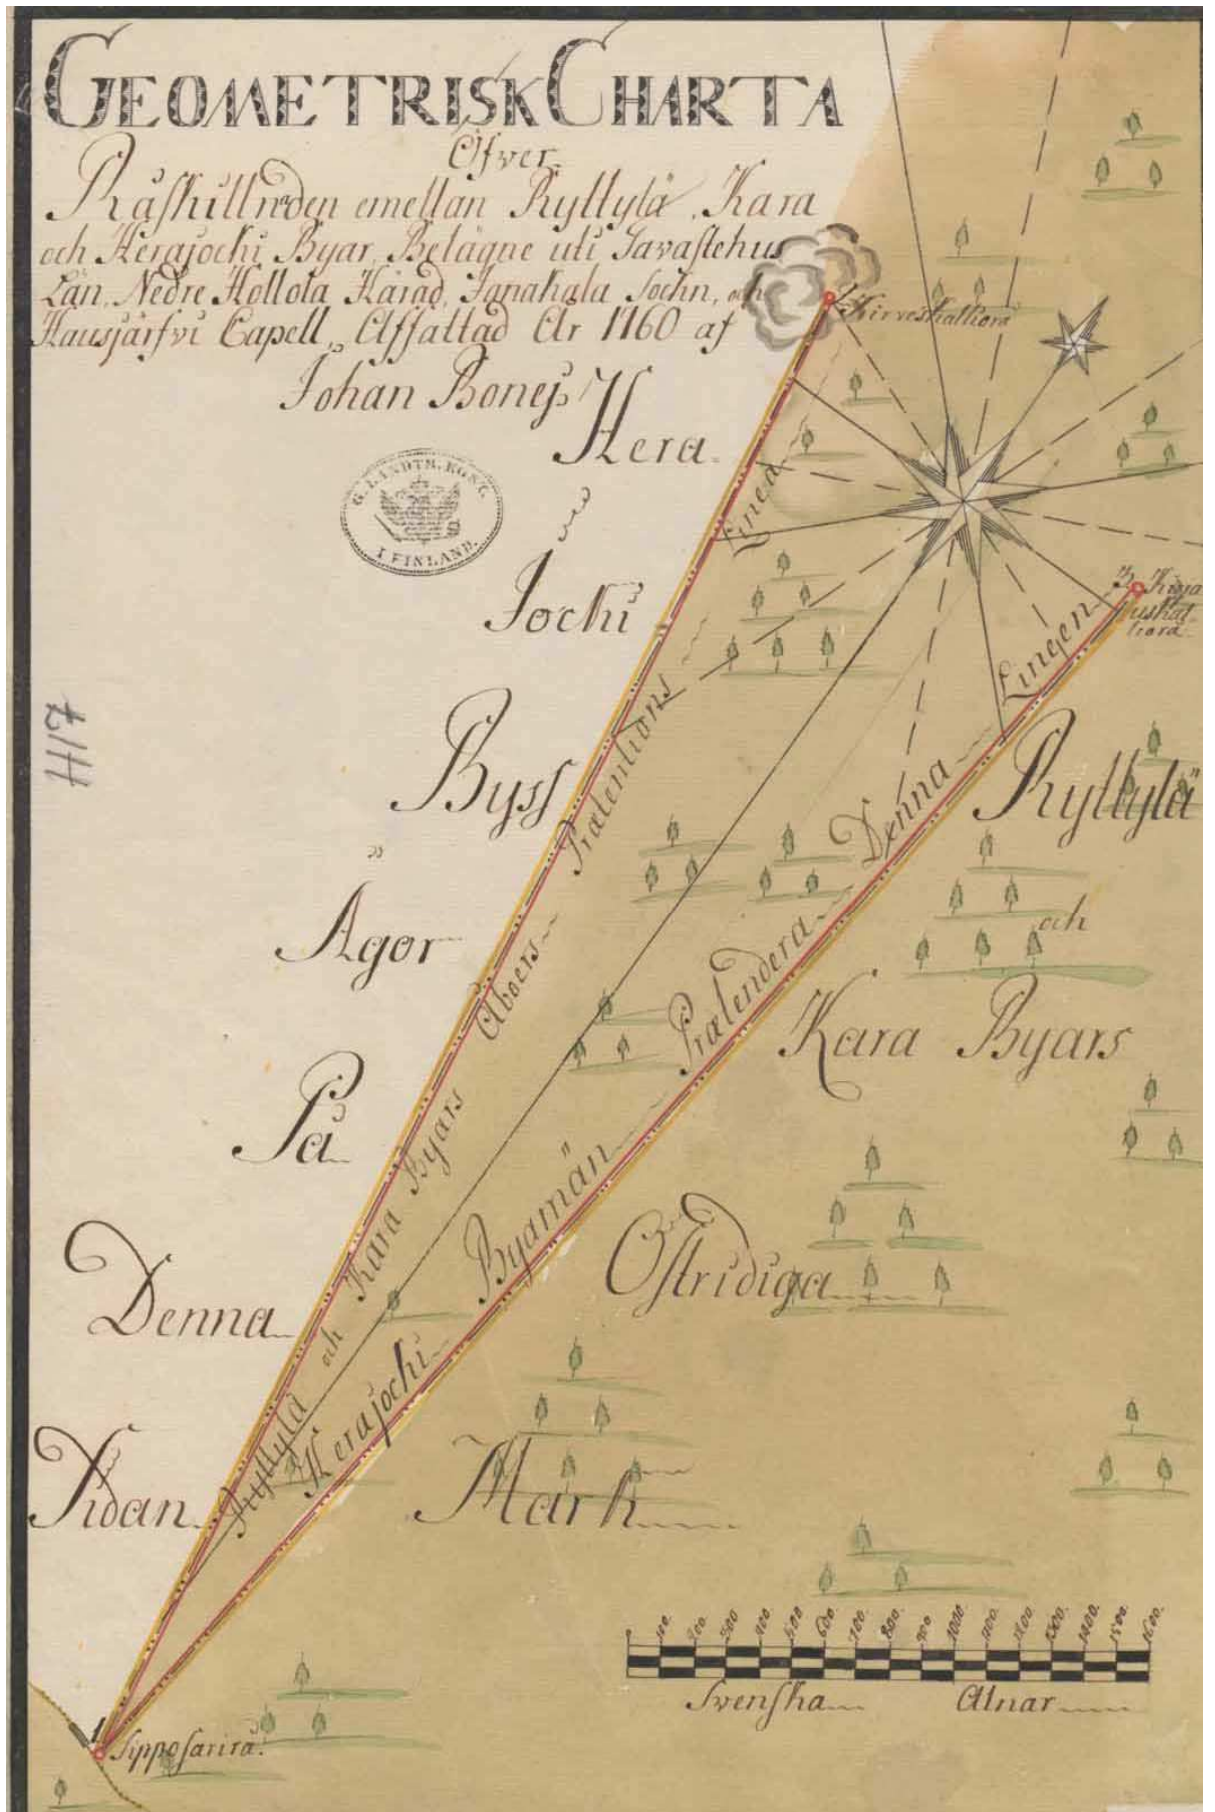 GEOMETRISK CHARTA
Öfver
Råskillnaden emellan Ryttylä, Kara
och Herajocki Byar, Belägne uti Tavastehus
Län, Nedre Hollola Härad, Janakala Sochn, och
Hausjärfvi Capell, Affattad År 1760 af
Johan Bonej
Kirveskalliora
Hera
Jocki
Byss
Ägor
På
Denna
Sidan
G. LANDTM. KONT.
I FINLAND.
H17
Ryttylä och Kara Byars Åboers Prætentions Linea
Herajocki Byamän Prætendera Denna Lineen
Ryttylä
och
Kara Byars
Ostridiga
Mark
Sipposarira
100. 200. 300 400. 500 600. 700. 800. 900 1000. 1100. 1200. 1300. 1400. 1500. 1600.
Svenska Alnar